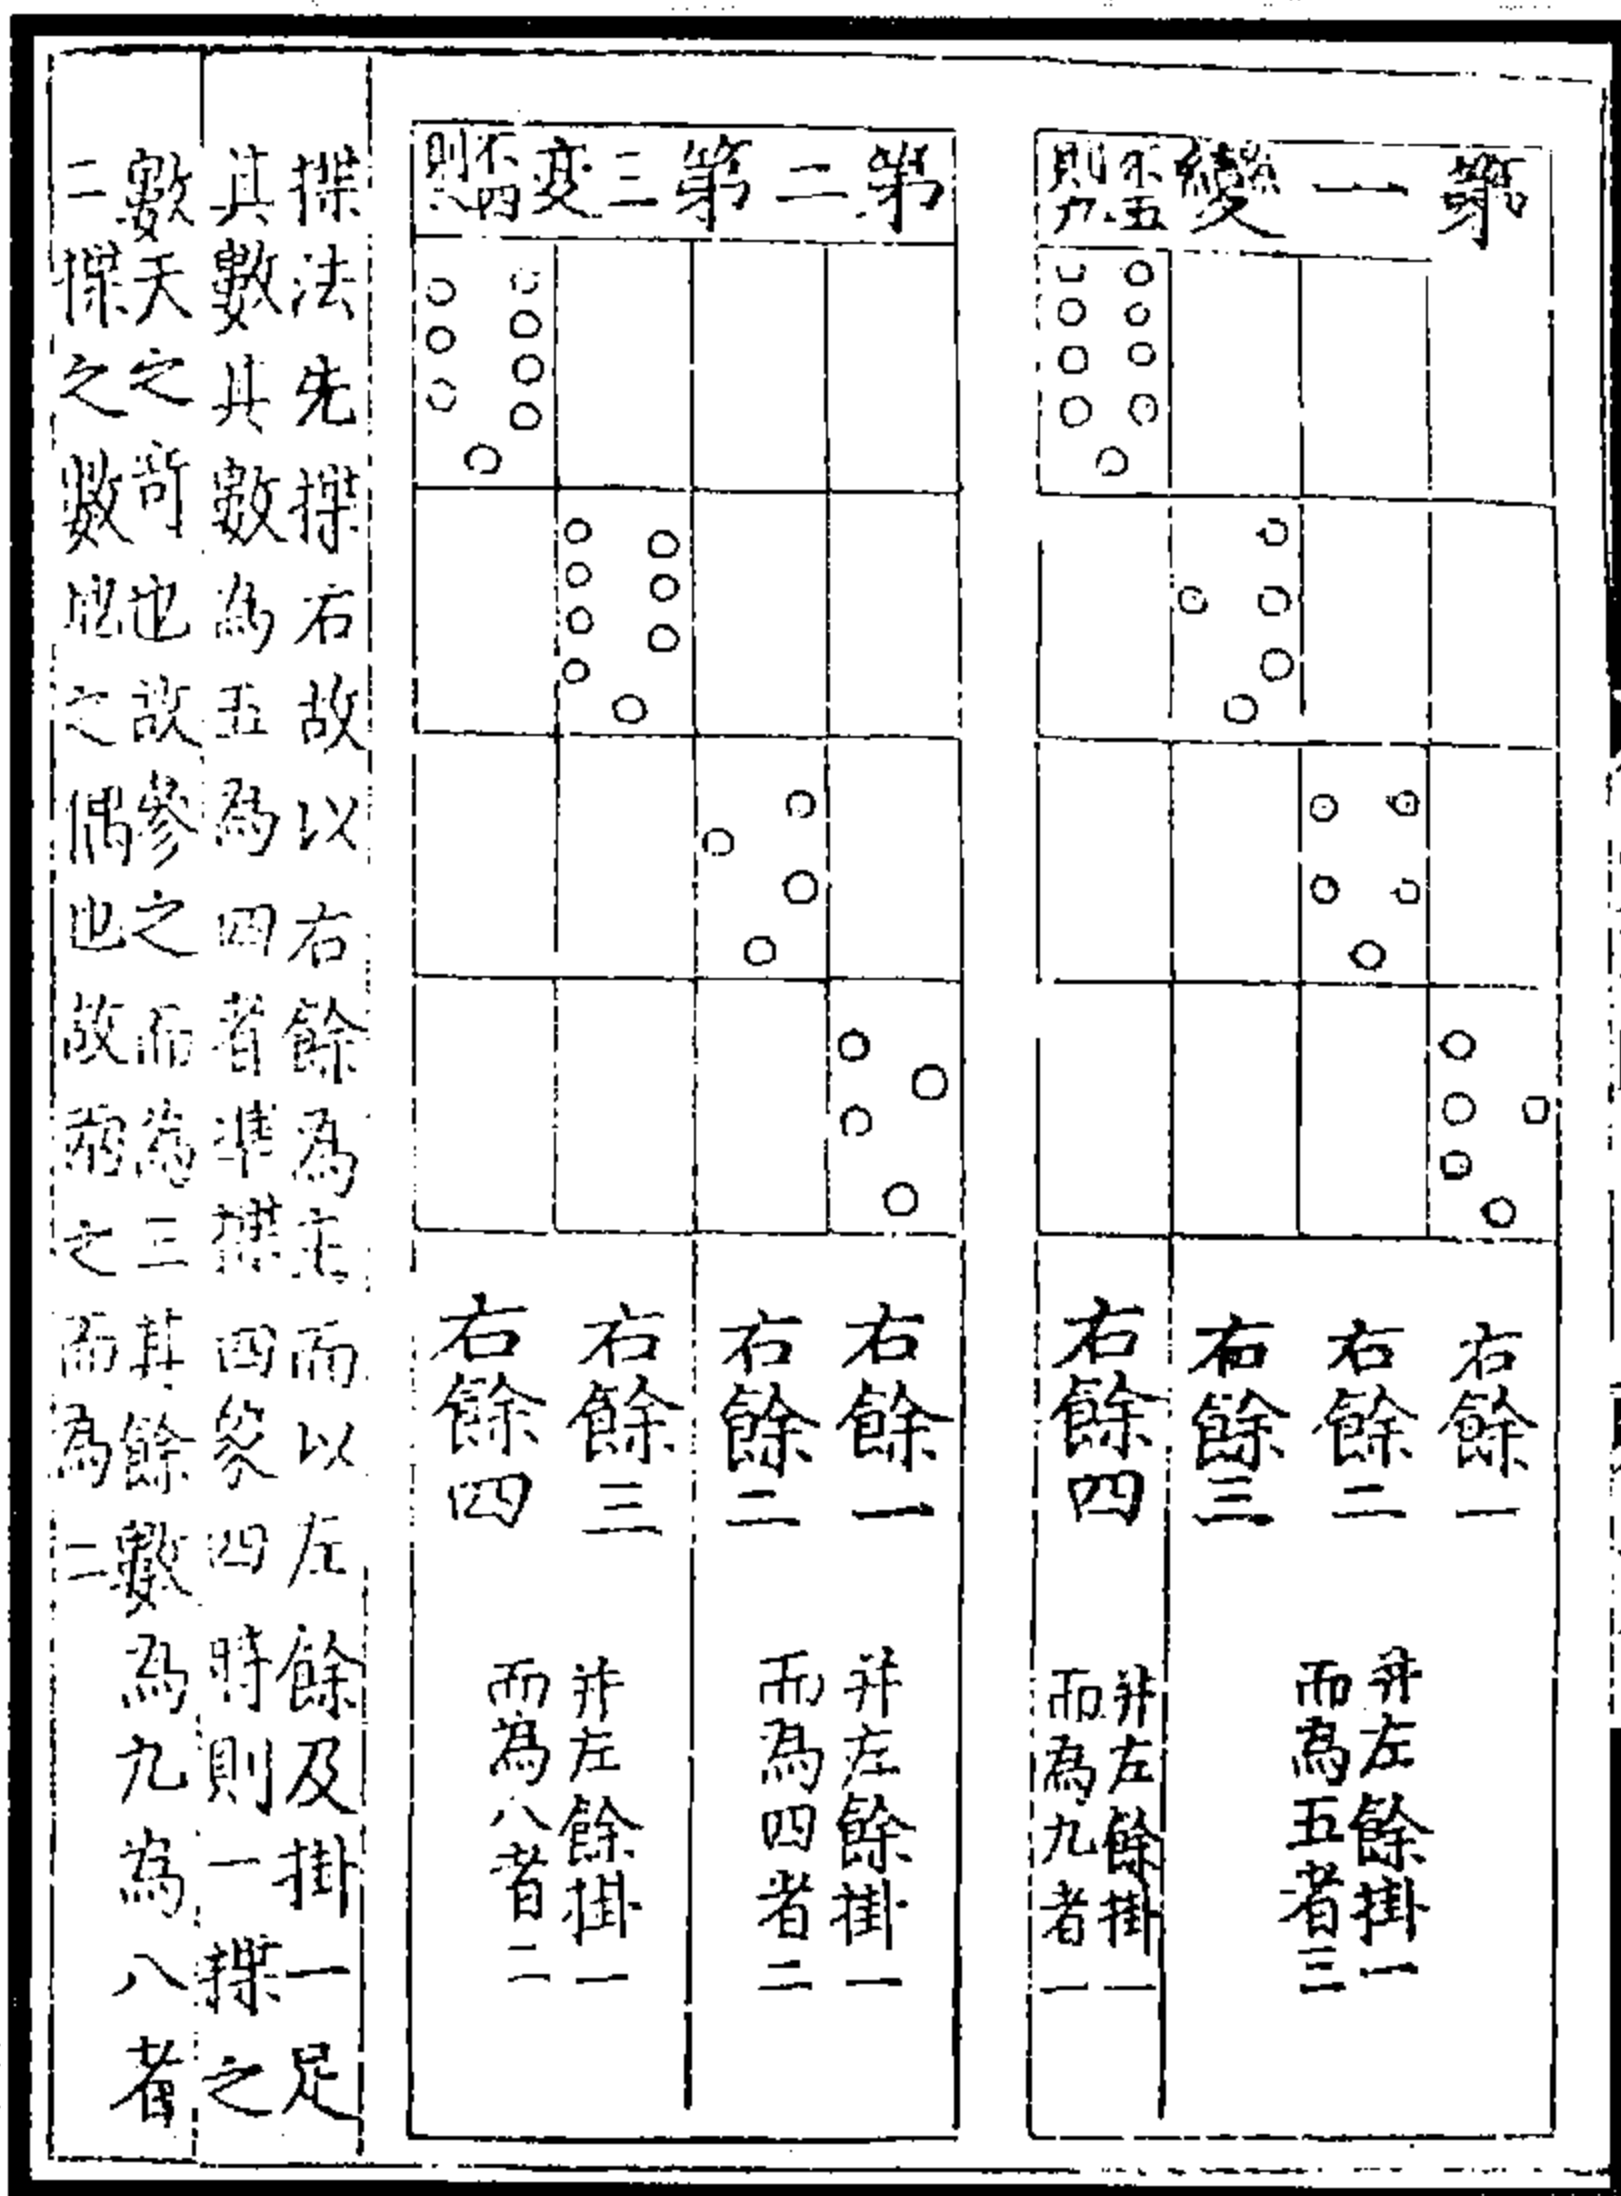 第一變
不五
則九
右餘一
右餘二
右餘三
右餘四
并左餘掛一
而為五者三
并左餘掛一
而為九者一
第二第三変
不四
則八
右餘一
右餘二
右餘三
右餘四
并左餘掛一
而為四者二
并左餘掛一
而為八者二
揲法先揲右故以右餘為主而以左餘及掛一足
其數其數為五為四者準揲四象四時則一揲之
數天之竒也故參之而為三其餘數為九為八者
二揲之數地之偶也故兩之而為二